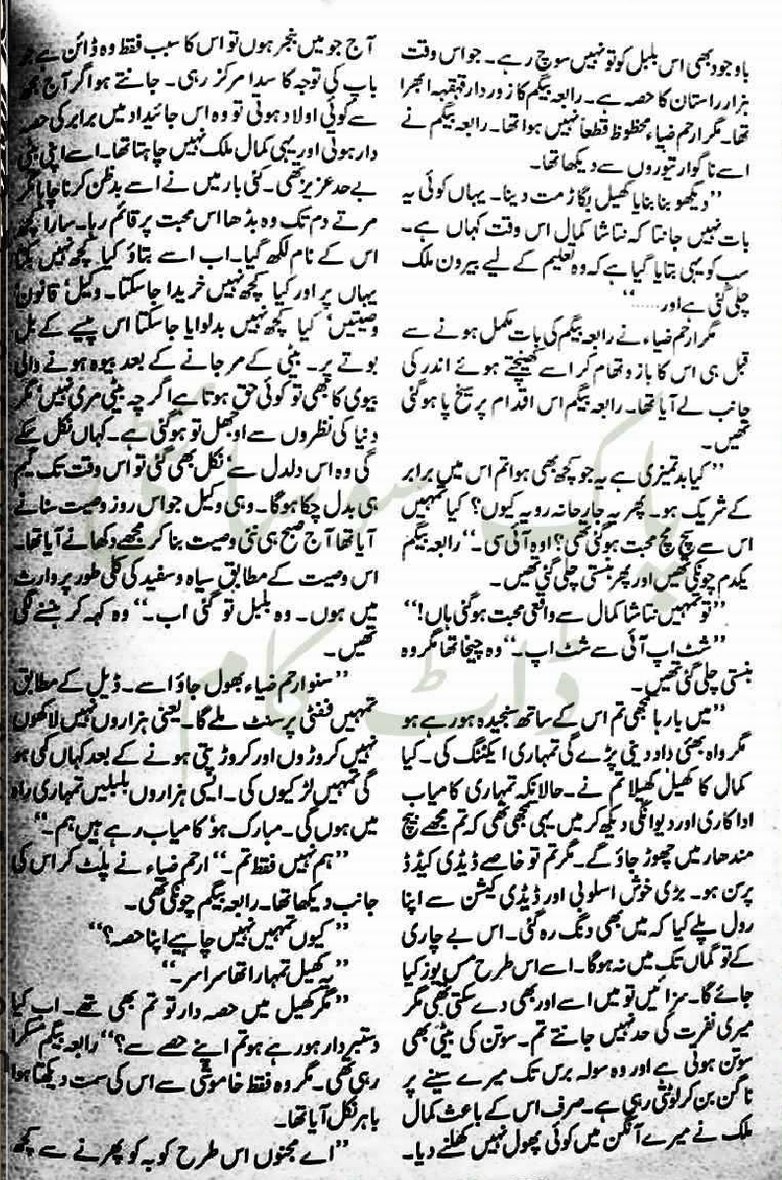 باوجود بھی اس بلبل کو تو نہیں سوچ رہے۔ جو اس وقت
ہزار راستان کا حصہ ہے۔ رابعہ بیگم کا زوردار قہقہہ ابھرا
تھا۔ مگر ارحم ضیاء محظوظ قطعاً نہیں ہوا تھا۔ رابعہ بیگم نے
اسے ناگوار تیوروں سے دیکھا تھا۔
”دیکھو بنا بنایا کھیل بگاڑ مت دینا۔ یہاں کوئی یہ
بات نہیں جانتا کہ نتاشا کمال اس وقت کہاں ہے۔
سب کو یہی بتایا گیا ہے کہ وہ تعلیم کے لیے بیرون ملک
چلی گئی ہے اور......“
مگر ارحم ضیاء نے رابعہ بیگم کی بات مکمل ہونے سے
قبل ہی اس کا بازو تھام کر اسے کھینچتے ہوئے اندر کی
جانب لے آیا تھا۔ رابعہ بیگم اس اقدام پر سیخ پا ہوگئی
تھیں۔
”کیا بدتمیزی ہے یہ جو کچھ بھی ہوا تم اس میں برابر
کے شریک ہو۔ پھر یہ جارحانہ رویہ کیوں؟ کیا تمہیں
اس سے سچ مچ محبت ہوگئی تھی؟ اوہ آئی سی۔“ رابعہ بیگم
یکدم چونکی تھیں اور پھر ہنستی چلی گئی تھیں۔
”تو تمہیں نتاشا کمال سے واقعی محبت ہوگئی ہاں!“
”شٹ اپ آئی سے شٹ اپ۔“ وہ چیخا تھا مگر وہ
ہنستی چلی گئی تھیں۔
”میں بارہا سمجھی تم اس کے ساتھ سنجیدہ ہو رہے ہو
مگر واہ بھئی داد دینی پڑے گی تمہاری ایکٹنگ کی۔ کیا
کمال کا کھیل کھیلا تم نے۔ حالانکہ تمہاری کامیاب
اداکاری اور دیوانگی دیکھ کر میں یہی سمجھی تھی کہ تم مجھے بیچ
مندھار میں چھوڑ جاؤ گے۔ مگر تم تو خاصے ڈیڈی کیٹڈ
پرسن ہو۔ بڑی خوش اسلوبی اور ڈیڈی کیشن سے اپنا
رول پلے کیا کہ میں بھی دنگ رہ گئی۔ اس بے چاری
کے تو گماں تک میں نہ ہوگا۔ اسے اس طرح مس یوز کیا
جائے گا۔ سزائیں تو میں اسے اور بھی دے سکتی تھی مگر
میری نفرت کی حد نہیں جانتے تم۔ سوتن کی بیٹی بھی
سوتن ہوتی ہے اور وہ سولہ برس تک میرے سینے پر
ناگن بن کر لوٹتی رہی ہے۔ صرف اس کے باعث کمال
ملک نے میرے آنگن میں کوئی پھول نہیں کھلنے دیا۔
آج جو میں بنجر ہوں تو اس کا سبب فقط وہ ڈائن ہے جو
باپ کی توجہ کا سدا مرکز رہی۔ جانتے ہو اگر آج مجھ
سے کوئی اولاد ہوتی تو وہ اس جائیداد میں برابر کی حصہ
دار ہوتی اور یہی کمال ملک نہیں چاہتا تھا۔ اسے اپنی بیٹی
بے حد عزیز تھی۔ کئی بار میں نے اسے بدظن کرنا چاہا مگر
مرتے دم تک وہ بڈھا اس محبت پر قائم رہا۔ سارا کچھ
اس کے نام لکھ گیا۔ اب اسے بتاؤ کیا کچھ نہیں بکتا
یہاں پر اور کیا کچھ نہیں خریدا جا سکتا۔ وکیل، قانون،
وصیتیں، کیا کچھ نہیں بدلوایا جاسکتا اس پیسے کے بل
بوتے پر۔ بیٹی کے مر جانے کے بعد بیوہ ہونے والی
بیوی کا بھی تو کوئی حق ہوتا ہے اگرچہ بیٹی مری نہیں، مگر
دنیا کی نظروں سے اوجھل تو ہوگئی ہے۔ کہاں نکل سکے
گی وہ اس دلدل سے، نکل بھی گئی تو اس وقت تک گیم
ہی بدل چکا ہوگا۔ وہی وکیل جو اس روز وصیت سنانے
آیا تھا آج صبح ہی نئی وصیت بنا کر مجھے دکھانے آیا تھا۔
اس وصیت کے مطابق سیاہ و سفید کی کلی طور پر وارث
میں ہوں۔ وہ بلبل تو گئی اب۔“ وہ کہہ کر ہنسنے لگی
تھیں۔
”سنو ارحم ضیاء بھول جاؤ اسے۔ ڈیل کے مطابق
تمہیں ففٹی پرسنٹ ملے گا۔ یعنی ہزاروں نہیں لاکھوں
نہیں کروڑوں اور کروڑ پتی ہونے کے بعد کہاں کمی ہو
گی تمہیں لڑکیوں کی۔ ایسی ہزاروں بلبلیں تمہاری راہ
میں ہوں گی۔ مبارک ہو، کامیاب رہے ہیں ہم۔“
”ہم نہیں فقط تم۔“ ارحم ضیاء نے پلٹ کر اس کی
جانب دیکھا تھا۔ رابعہ بیگم چونکی تھی۔
”کیوں تمہیں نہیں چاہیے اپنا حصہ؟“
”یہ کھیل تمہارا تھا سراسر۔“
”مگر کھیل میں حصہ دار تو تم بھی تھے۔ اب کیا
دستبردار ہو رہے ہو تم اپنے حصے سے؟“ رابعہ بیگم مسکرا
رہی تھی۔ مگر وہ فقط خاموشی سے اس کی سمت دیکھتا ہوا
باہر نکل آیا تھا۔
”اے مجنوں اس طرح کوبہ کو پھرنے سے کچھ
پاک سوسائٹی
ڈاٹ کام